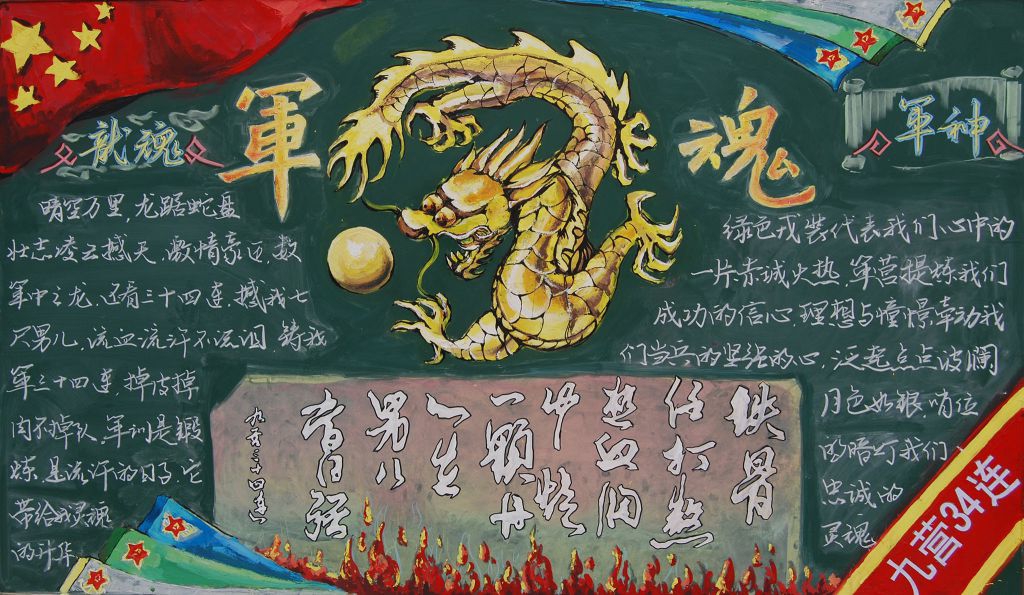 軍魂
龙魂
晴空万里，龙踞蛇盘
壮志凌云撼天，激情豪迈，数
军中之龙，还看三十四连，撼我七
尺男儿，流血流汗不流泪，铸我
军三十四连，掉皮掉
肉不掉队，军训是锻
炼，是流汗的日子，它
带给我灵魂
的升华
軍神
绿色戎装代表我们心中的
一片赤诚火热，军营提炼我们
成功的信心，理想与憧憬牵动我
们当兵的坚强的心，泛起点点波澜
月色如银，哨位
的暗叮我们
忠诚的
灵魂
铁骨
任打熬
热血洞
中燃
一颗丹
一生
男儿
当自强
九营三十四连
九营34连